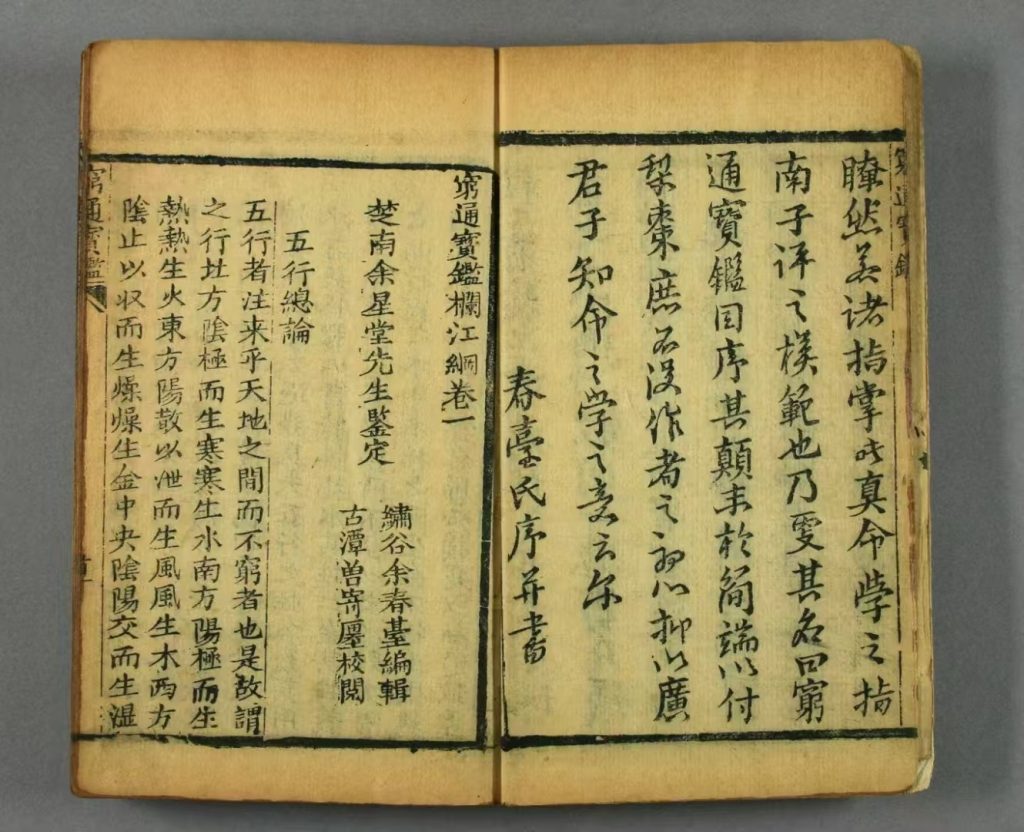 瞭然若諸指掌此真命學之指
南子評之模範也乃更其名曰窮
通寶鑑因序其顛末於簡端以付
梨棗庶不沒作者之初心抑以廣
君子知命之學之意云尔
春臺氏序并書
窮通寶鑑
窮通寶鑑欄江綱卷一
楚南余星堂先生鑒定
繡谷余春臺編輯
古潭曾寄廛校閱
五行總論
五行者注来乎天地之間而不窮者也是故謂
之行北方陰極而生寒寒生水南方陽極而生
熱熱生火東方陽散以泄而生風風生木西方
陰止以収而生燥燥生金中央陰陽交而生湿
窮通寶鑑